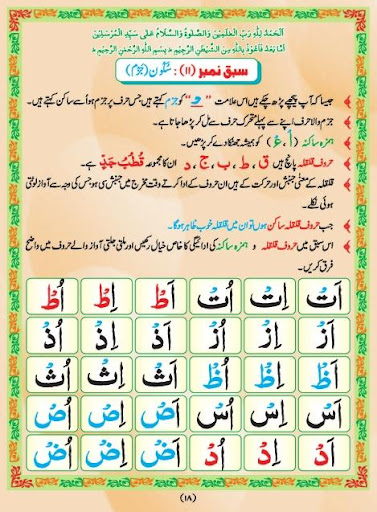 اَلْحَمْدُ لِلّٰهِ رَبِّ الْعٰلَمِيْنَ وَالصَّلٰوةُ وَالسَّلَامُ عَلٰى سَيِّدِ الْمُرْسَلِيْنَ
اَمَّا بَعْدُ فَاَعُوْذُ بِاللّٰهِ مِنَ الشَّيْطٰنِ الرَّجِيْمِ بِسْمِ اللّٰهِ الرَّحْمٰنِ الرَّحِيْمِ
سبق نمبر (۱۱) : سُکُون (جَزْم)
جیسا کہ آپ پیچھے پڑھ چکے ہیں اس علامت " ـْ " کو جزم کہتے ہیں جس حرف پر جزم ہو اُسے ساکن کہتے ہیں۔
جزم والا حرف اپنے سے پہلے متحرک حرف سے مل کر پڑھا جاتا ہے۔
ہمزہ ساکنہ (أْ ، ءْ) کو ہمیشہ جھٹکا دے کر پڑھیں۔
حروفِ قلقلہ پانچ ہیں ق ، ط ، ب ، ج ، د ان کا مجموعہ قُطْبُ جَدٍّ ہے۔
قلقلہ کے معنی جنبش اور حرکت کے ہیں ان حروف کے ادا کرتے وقت مخرج میں جنبش سی ہو جس کی وجہ سے آواز لوٹتی
ہوئی نکلے۔
جب حروفِ قلقلہ ساکن ہوں تو ان میں قلقلہ خوب ظاہر ہوگا۔
اس سبق میں حروفِ قلقلہ و ہمزہ ساکنہ کی ادائیگی کا خاص خیال رکھیں اور ملتی جلتی آواز والے حروف میں واضح
فرق کریں۔
اَتْ اِتْ اُتْ اَطْ اِطْ اُطْ
اَزْ اِزْ اُزْ اَذْ اِذْ اُذْ
اَظْ اِظْ اُظْ اَثْ اِثْ اُثْ
اَسْ اِسْ اُسْ اَصْ اِصْ اُصْ
اَدْ اِدْ اُدْ اَضْ اِضْ اُضْ
(۱۸)